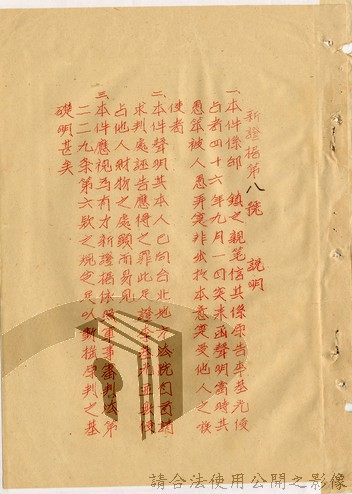 新證據第八號　說明
一、本件係邱　鎮之親筆信其係原告李基光使
占者四十六年九月一日突來函聲明當時共
愚笨被人愚弄實非出於本意受他人之
使者
二、本件聲明其本人已向台北地方法院
求判處誣告應得之罪此足證李基光
占他人財物之處顯而易見
三、本件應視為有力新證據依軍事審判法第
二二九條第六款之規定足以動搖原判之基
礎明甚矣
請合法使用公開之影像